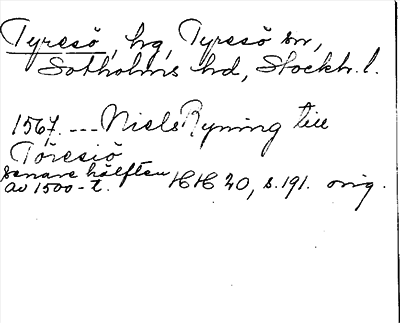 Tyresö, hg, Tyresö sn,
Sotholms hd, Stockh. l.
1567. --- Niels Ryning till
Töresiö
senare hälften
av 1500-t. HH 20, s. 191. orig.